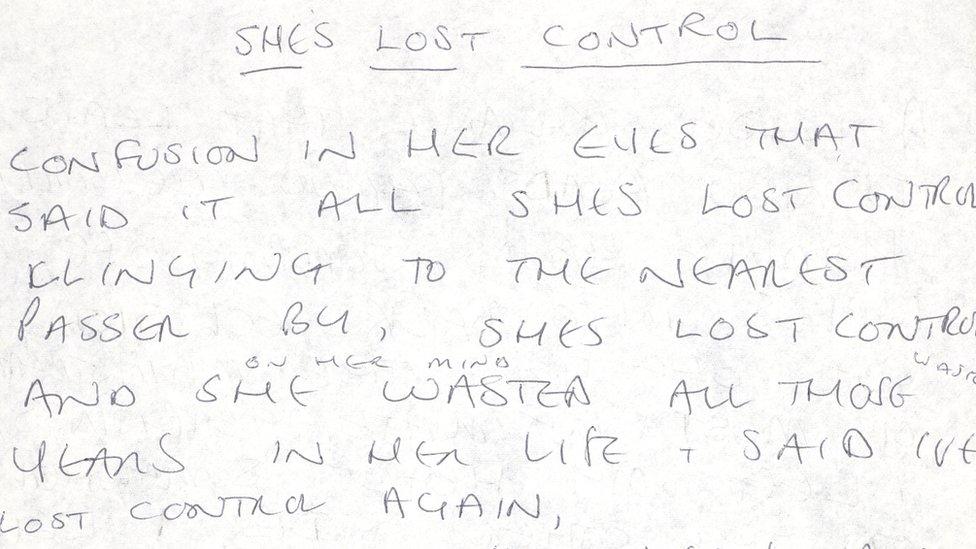 SHES LOST CONTROL
CONFUSION IN HER EYES THAT
SAID IT ALL SHES LOST CONTROL
KLINGING TO THE NEAREST
PASSER BY, SHES LOST CONTROL
ON HER MIND
AND SHE WASTED ALL THOSE
YEARS IN HER LIFE + SAID IVE
LOST CONTROL AGAIN,